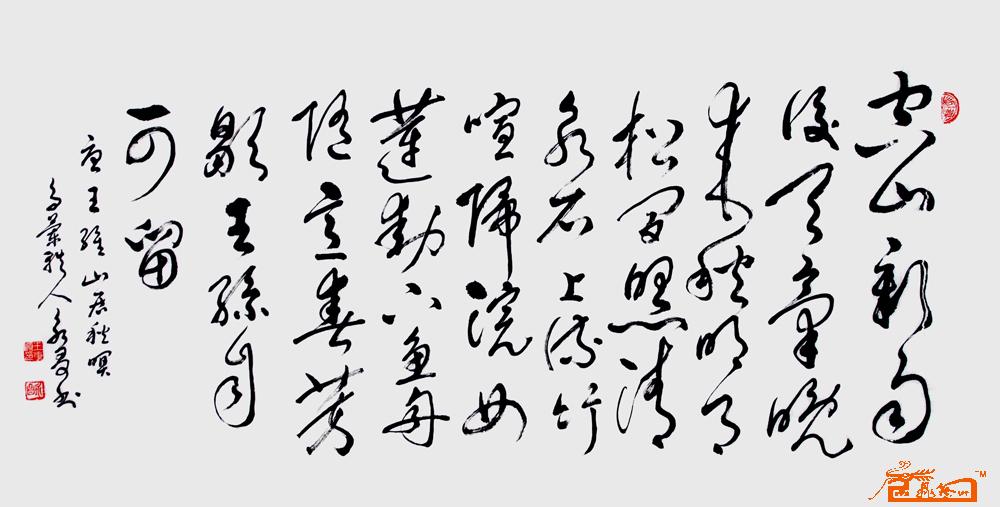 空山新雨
後天氣晚
來秋明月
松間照清
泉石上流竹
喧歸浣女
蓮動下漁舟
隨意春芳
歇王孫自
可留
唐王維山居秋暝
人永書